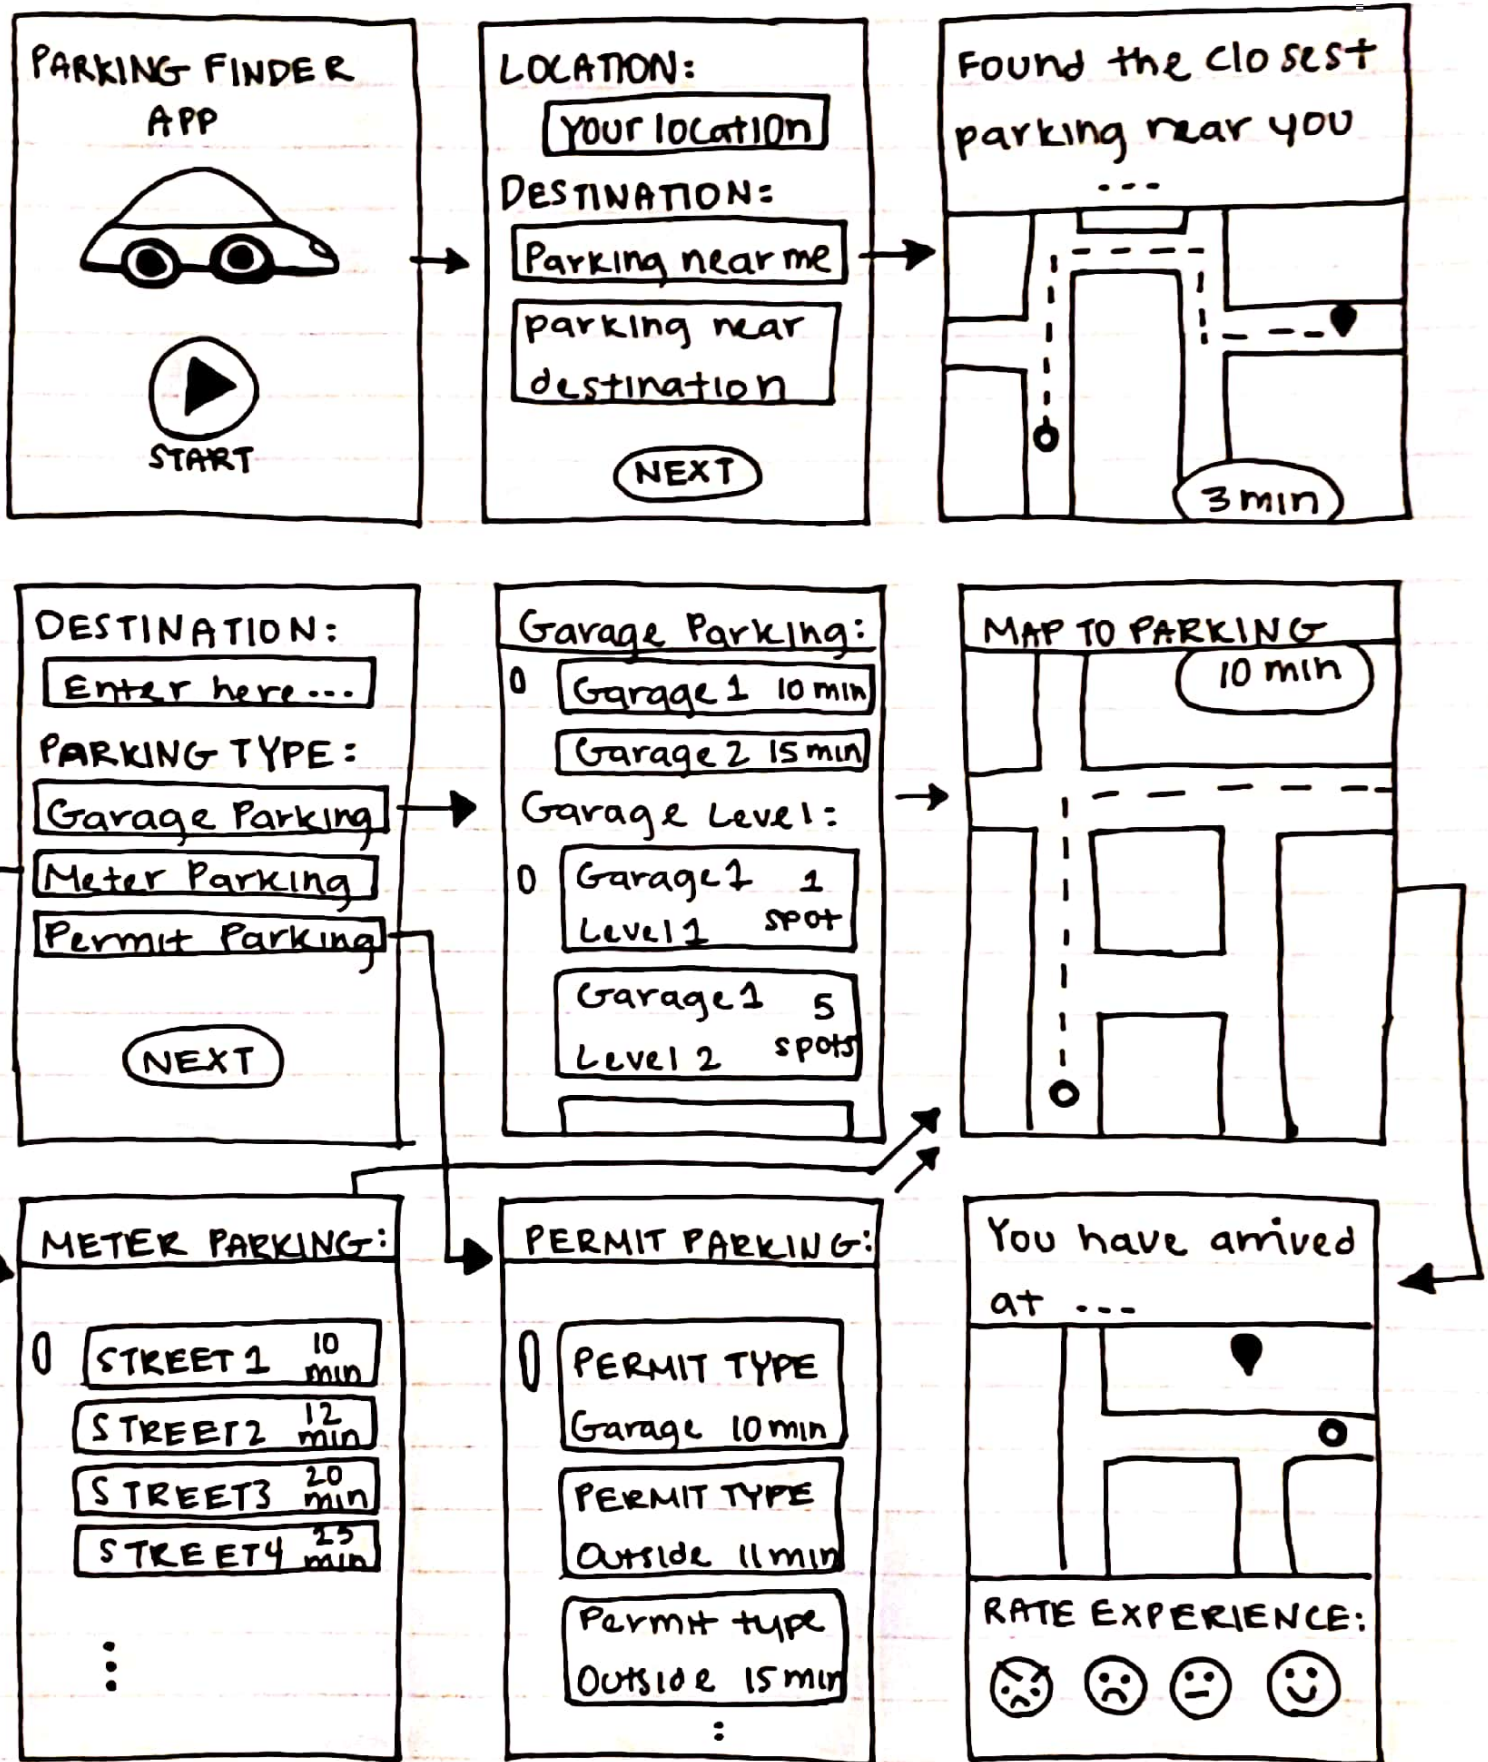 PARKING FINDER
APP
START
LOCATION:
Your location
DESTINATION:
Parking near me
parking near
destination
NEXT
Found the closest
parking near you
...
3 min
DESTINATION:
Enter here...
PARKING TYPE:
Garage Parking
Meter Parking
Permit Parking
NEXT
Garage Parking:
Garage 1 10 min
Garage 2 15 min
Garage Level:
Garage 1 1
Level 1 spot
Garage 1 5
Level 2 spots
MAP TO PARKING
10 min
METER PARKING:
STREET 1 10 min
STREET 2 12 min
STREET 3 20 min
STREET 4 25 min
PERMIT PARKING:
PERMIT TYPE
Garage 10 min
PERMIT TYPE
Outside 11 min
Permit type
Outside 15 min
You have arrived
at ...
RATE EXPERIENCE: